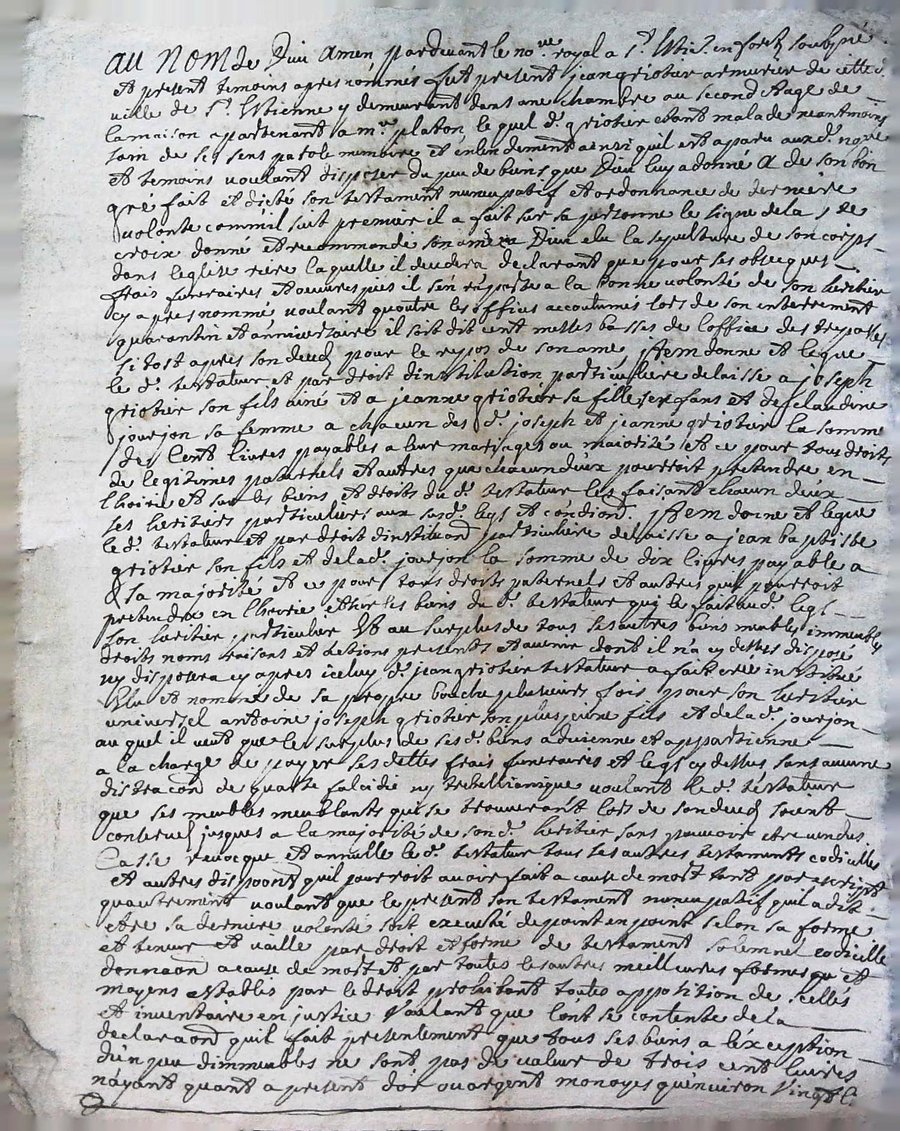 au nom de Dieu amen pardevant le no.re royal a S.t Etie.e en forest soubsigné
et present temoins apres nommés fut present jean griotier armurier de cette d.
ville de S.t Etienne y demeurant dans une chambre au second etage de
la maison appartenant a m.re platon, le quel d. griotier etant malade neantmoins
sain de ses sens parole memoire et entendement ainsi quil est apparu auxd. no.re
et temoins voulant disposer du peu de biens que Dieu luy a donne a de son bon
gré fait et dicté son testament nuncupatif et ordonnance de derniere
volonte comm'il suit premier il a fait sur sa personne le signe de la s.te
croix donne et recommande son ame a Dieu elu la sepulture de son corps
dans leglise riere laquelle il decedera declarant que pour ses obseques
frais funeraires et oeuvres pies il s'en raporte a la bonne volonté de son heritier
cy apres nommé voulant qu'outre les offices accoutumés lors de son enterrement
quarantin et anniversaire il soit dit cent messes basses de l'office des trepassés
si tost apres son deced pour le repos de son ame jtem donne et legue
le d. testateur et par droit dinstitution particuliere delaisse a joseph
griotier son fils ainé et a jeanne griotier sa fille ses enfans et de claudine
jourjon sa femme a chacun des d. joseph et jeanne griotier la somme
de cent livres payables a leur mariages ou majorités et ce pour tous droits
de legitimes paternels et autres que chacun deux pourroit pretendre en
lhoirie et sur les biens et droits du d. testateur les faisant chacun deux
ses heritiers particuliers aux susd. legs et condiond jtem donne et legue
le d. testateur et par droit dinstituaond particuliere delaisse a jean baptiste
griotier son fils et de lad. jourjon la somme de dix livres payable a
sa majorité et ce pour tous droits paternels et autres quil pourroit
pretendre en lhoirie et sur les biens du d. testateur qui le fait aud. legs
son heritier particulier Et au surplus de tous ses autres biens meubles immeubles
droits noms raisons et actions presents et avenir dont il n'a cy dessus disposé
ny disposera cy apres iceluy d. jean griotier testateur a fait créé institué
Elu et nommé de sa propre bouche plusieurs fois pour son heritier
universel antoine joseph griotier son plus jeune fils et de la d. jourjon
auquel il veut que le surplus de ses d. biens advienne et appartienne
a la charge de payer ses dettes frais funeraires et legs cy dessus sans aucune
distracon de quarte falcidie ny trebellianique voulant le d. testateur
que ses meubles meublants qui se trouveront lors de son deced soient
conservés jusques a la majorité de son d. heritier sans pouvoir etre vendus
Casse revocque et annulle le d. testateur tous ses autres testaments codicilles
et autres dispoond quil pourroit avoir fait a cause de mort tant par escript
qu'autrement voulant que le present son testament nuncupatif quil a dit
etre sa derniere volonté soit executé de point en point selon sa forme
et teneur et vaille par droit et forme de testament solemnel codicille
donnaond a cause de mort et par toutes les autres meilleures formes que et
moyens estables par le droit prohibant toutes apposition de scelles
et inventaire en justice Voulant que lont se contente de la
declaraond quil fait presentement que tous ses biens a l'exception
dun peu dimmeubles ne sont pas de valeur de trois cent livres
n'ayant quant a present d'or ou argent monoyes qu'environ vingt l.